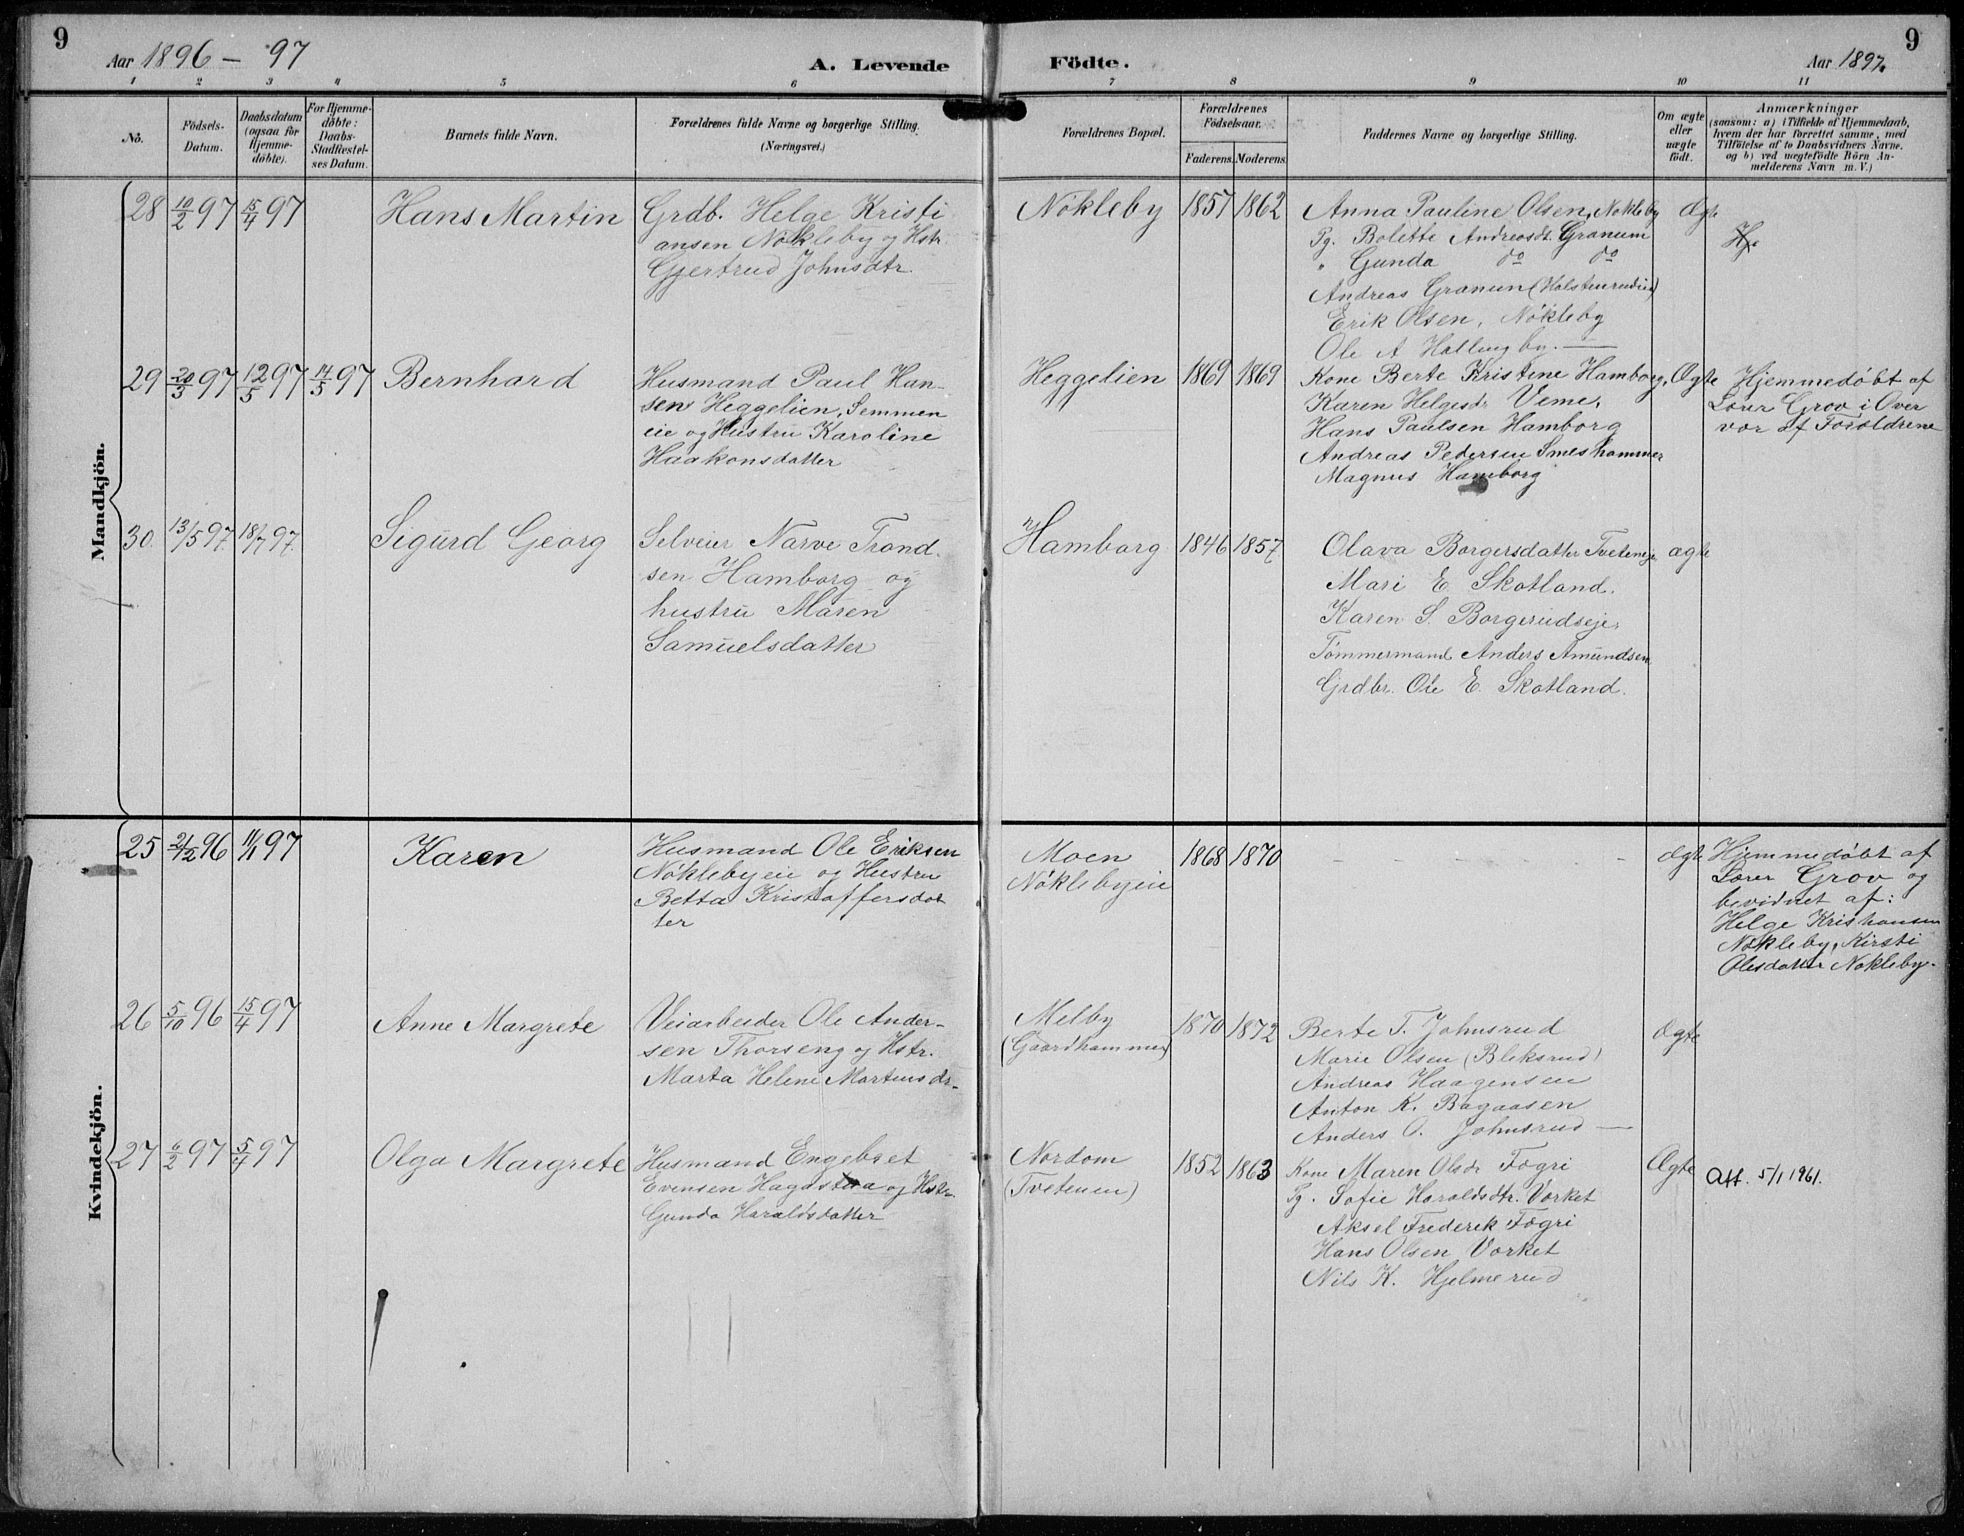 9
Aar 1896 - 97
A. Levende
Födte.
Aar 1897.
9
1 2 3 4 5 6 7 8 9 10 11
No.
Födsels-
Datum.
Daabsdatum
(ogsaa for
Hjemme-
döbte).
For Hjemme-
döbte:
Daabs-
Stadfæstel-
ses Datum.
Barnets fulde Navn.
Forældrenes fulde Navne og borgerlige Stilling.
(Næringsvei.)
Forældrenes Bopæl.
Forældrenes
Födselsaar.
Faderens. Moderens.
Faddernes Navne og borgerlige Stilling.
Om ægte
eller
uægte
födt.
Anmærkninger
(saasom: a) i Tilfælde af Hjemmedaab,
hvem der har forrettet samme, med
Tilföielse af to Daabsvidners Navne.
og b) ved uægtefödte Börn An-
melderens Navn m. V.)
Mandkjön.
28 10/2 97 15/4 97
Hans Martin
Grdb. Helge Kristi
ansen Nökleby og Hstr.
Gjertrud Johnsdtr.
Nökleby
1857 1862
Anna Pauline Olsen, Nökleby
Pg. Bolette Andreasdt. Granum
" Gunda do do
Andreas Granum (Halstenrudeie)
Erik Olsen, Nökleby
Ole A Hallingby. —
Ægte
29 20/3 97 12/5 97 14/5 97
Bernhard
Husmand Paul Han-
sen Heggelien, Semmen
eie og Hustru Karoline
Haakonsdatter
Heggelien
1869 1869
Kone Berte Kristine Hamborg,
Karen Helgesdr Veme,
Hans Paulsen Hamborg
Andreas Pedersen Smeshammer
Magnus Hamborg
Ægte
Hjemmedöbt af
Lærer Grov i Over
vær af Forældrene
30 13/5 97. 18/7 97.
Sigurd Georg
Selveier Narve Trond-
sen Hamborg og
hustru Maren
Samuelsdatter
Hamborg
1846 1857
Olava Borgersdatter Tveteneje
Mari E Skotland.
Karen S. Borgerudseje,
Tömmermand Anders Amundsen
Grdbr. Ole E. Skotland.
ægte
Kvindekjön.
25 21/12 96 11/1 97
Karen
Husmand Ole Eriksen
Nöklebyeie og Hustru
Betta Kristoffersdat
ter
Moen
Nöklebyeie
1868 1870
- - - - - -
Ægte
Hjemmedöbt af
Lærer Grov og
bevidnet af:
Helge Kristiansen
Nökleby, Kirsti
Olesdatter Nökleby.
26 5/10 96 15/4 97
Anne Margrete
Veiarbeider Ole Ander-
sen Thorseng og Hstr.
Marta Helene Martinsdr.
Melby
(Gaardhammer)
1870 1872
Berte T. Johnsrud
Marie Olsen (Bleksrud)
Andreas Haagensen
Anton K. Bagaasen
Anders O. Johnsrud —
Ægte
27 6/2 97 5/7 97
Olga Margrete
Husmand Engebret
Evensen og Hstr.
Gunda Haraldsdatter
Nordom
(Tvetenen)
1852 1863
Kone Maren Olsdr Fogri
Pg. Sofie Haroldsdtr. Vorket
Aksel Frederik Fogri
Hans Olsen Vorket
Nils K. Hjelmerud
Ægte
Att. 5/1 1961.